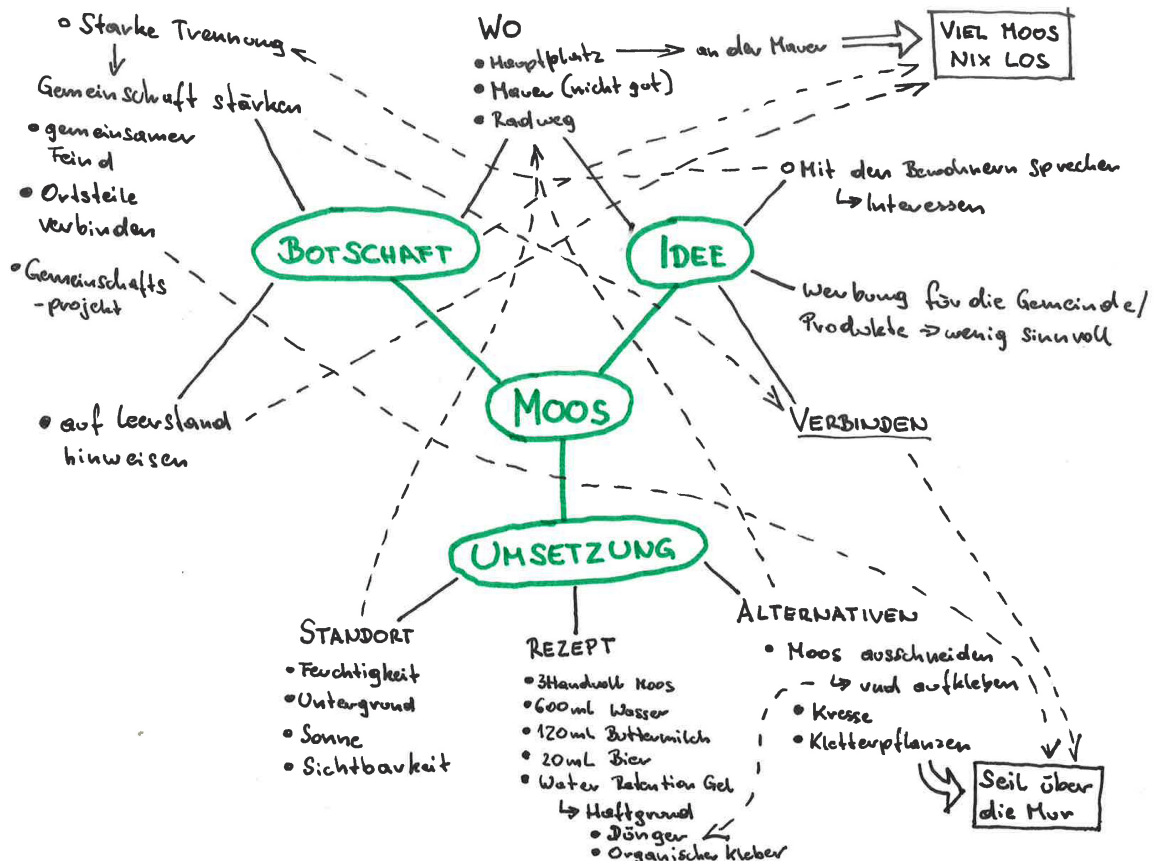 Starke Trennung
Gemeinschaft stärken
gemeinsamer
Feind
Ortsteile
verbinden
Gemeinschafts
-projekt
auf Leerstand
hinweisen
WO
Hauptplatz → an der Mauer
Mauer (nicht gut)
Radweg
VIEL MOOS
NIX LOS
Mit den Bewohnern sprechen
↳ Interessen
Werbung für die Gemeinde/
Produkte → wenig sinnvoll
VERBINDEN
BOTSCHAFT
IDEE
MOOS
UMSETZUNG
STANDORT
Feuchtigkeit
Untergrund
Sonne
Sichtbarkeit
REZEPT
3 Handvoll Moos
600ml Wasser
120ml Buttermilch
20ml Bier
Water Retention Gel
↳ Haftgrund
Dünger
Organischer Kleber
ALTERNATIVEN
Moos ausschneiden
↳ und aufkleben
Kresse
Kletterpflanzen
Seil über
die Mur